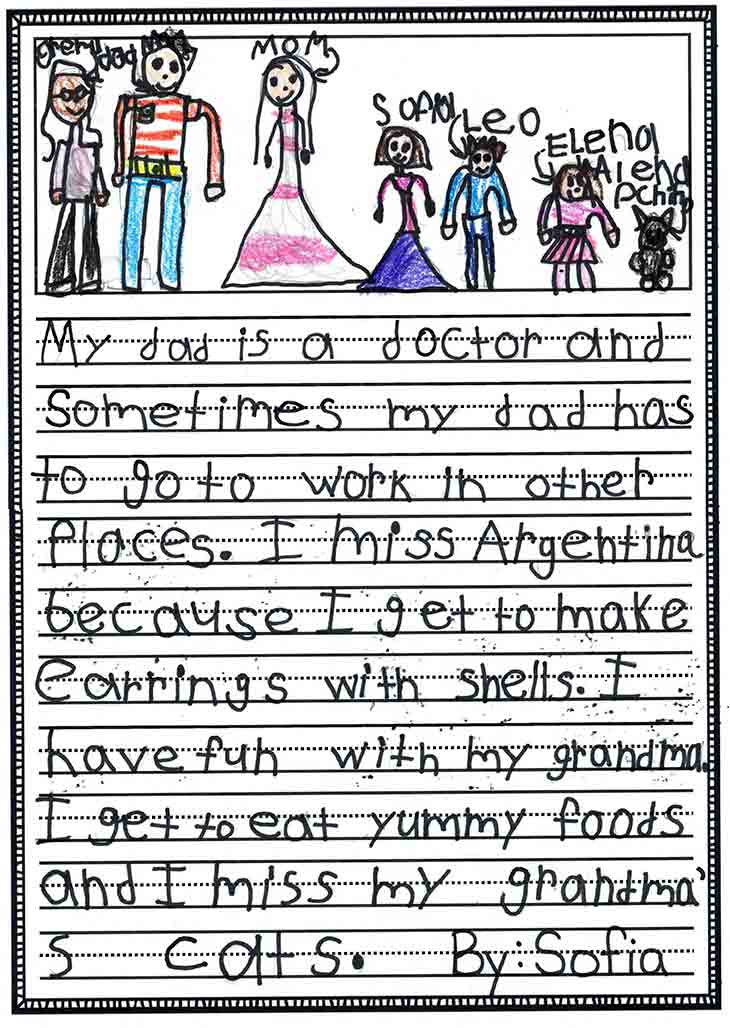 dad
MOM
SOFIA
LEO
ELENA
My dad is a doctor and
sometimes my dad has
to go to work in other
Places. I miss Argentina
because I get to make
earrings with shells. I
have fun with my grandma.
I get to eat yummy foods
and I miss my grandma'
s cats. By: Sofia